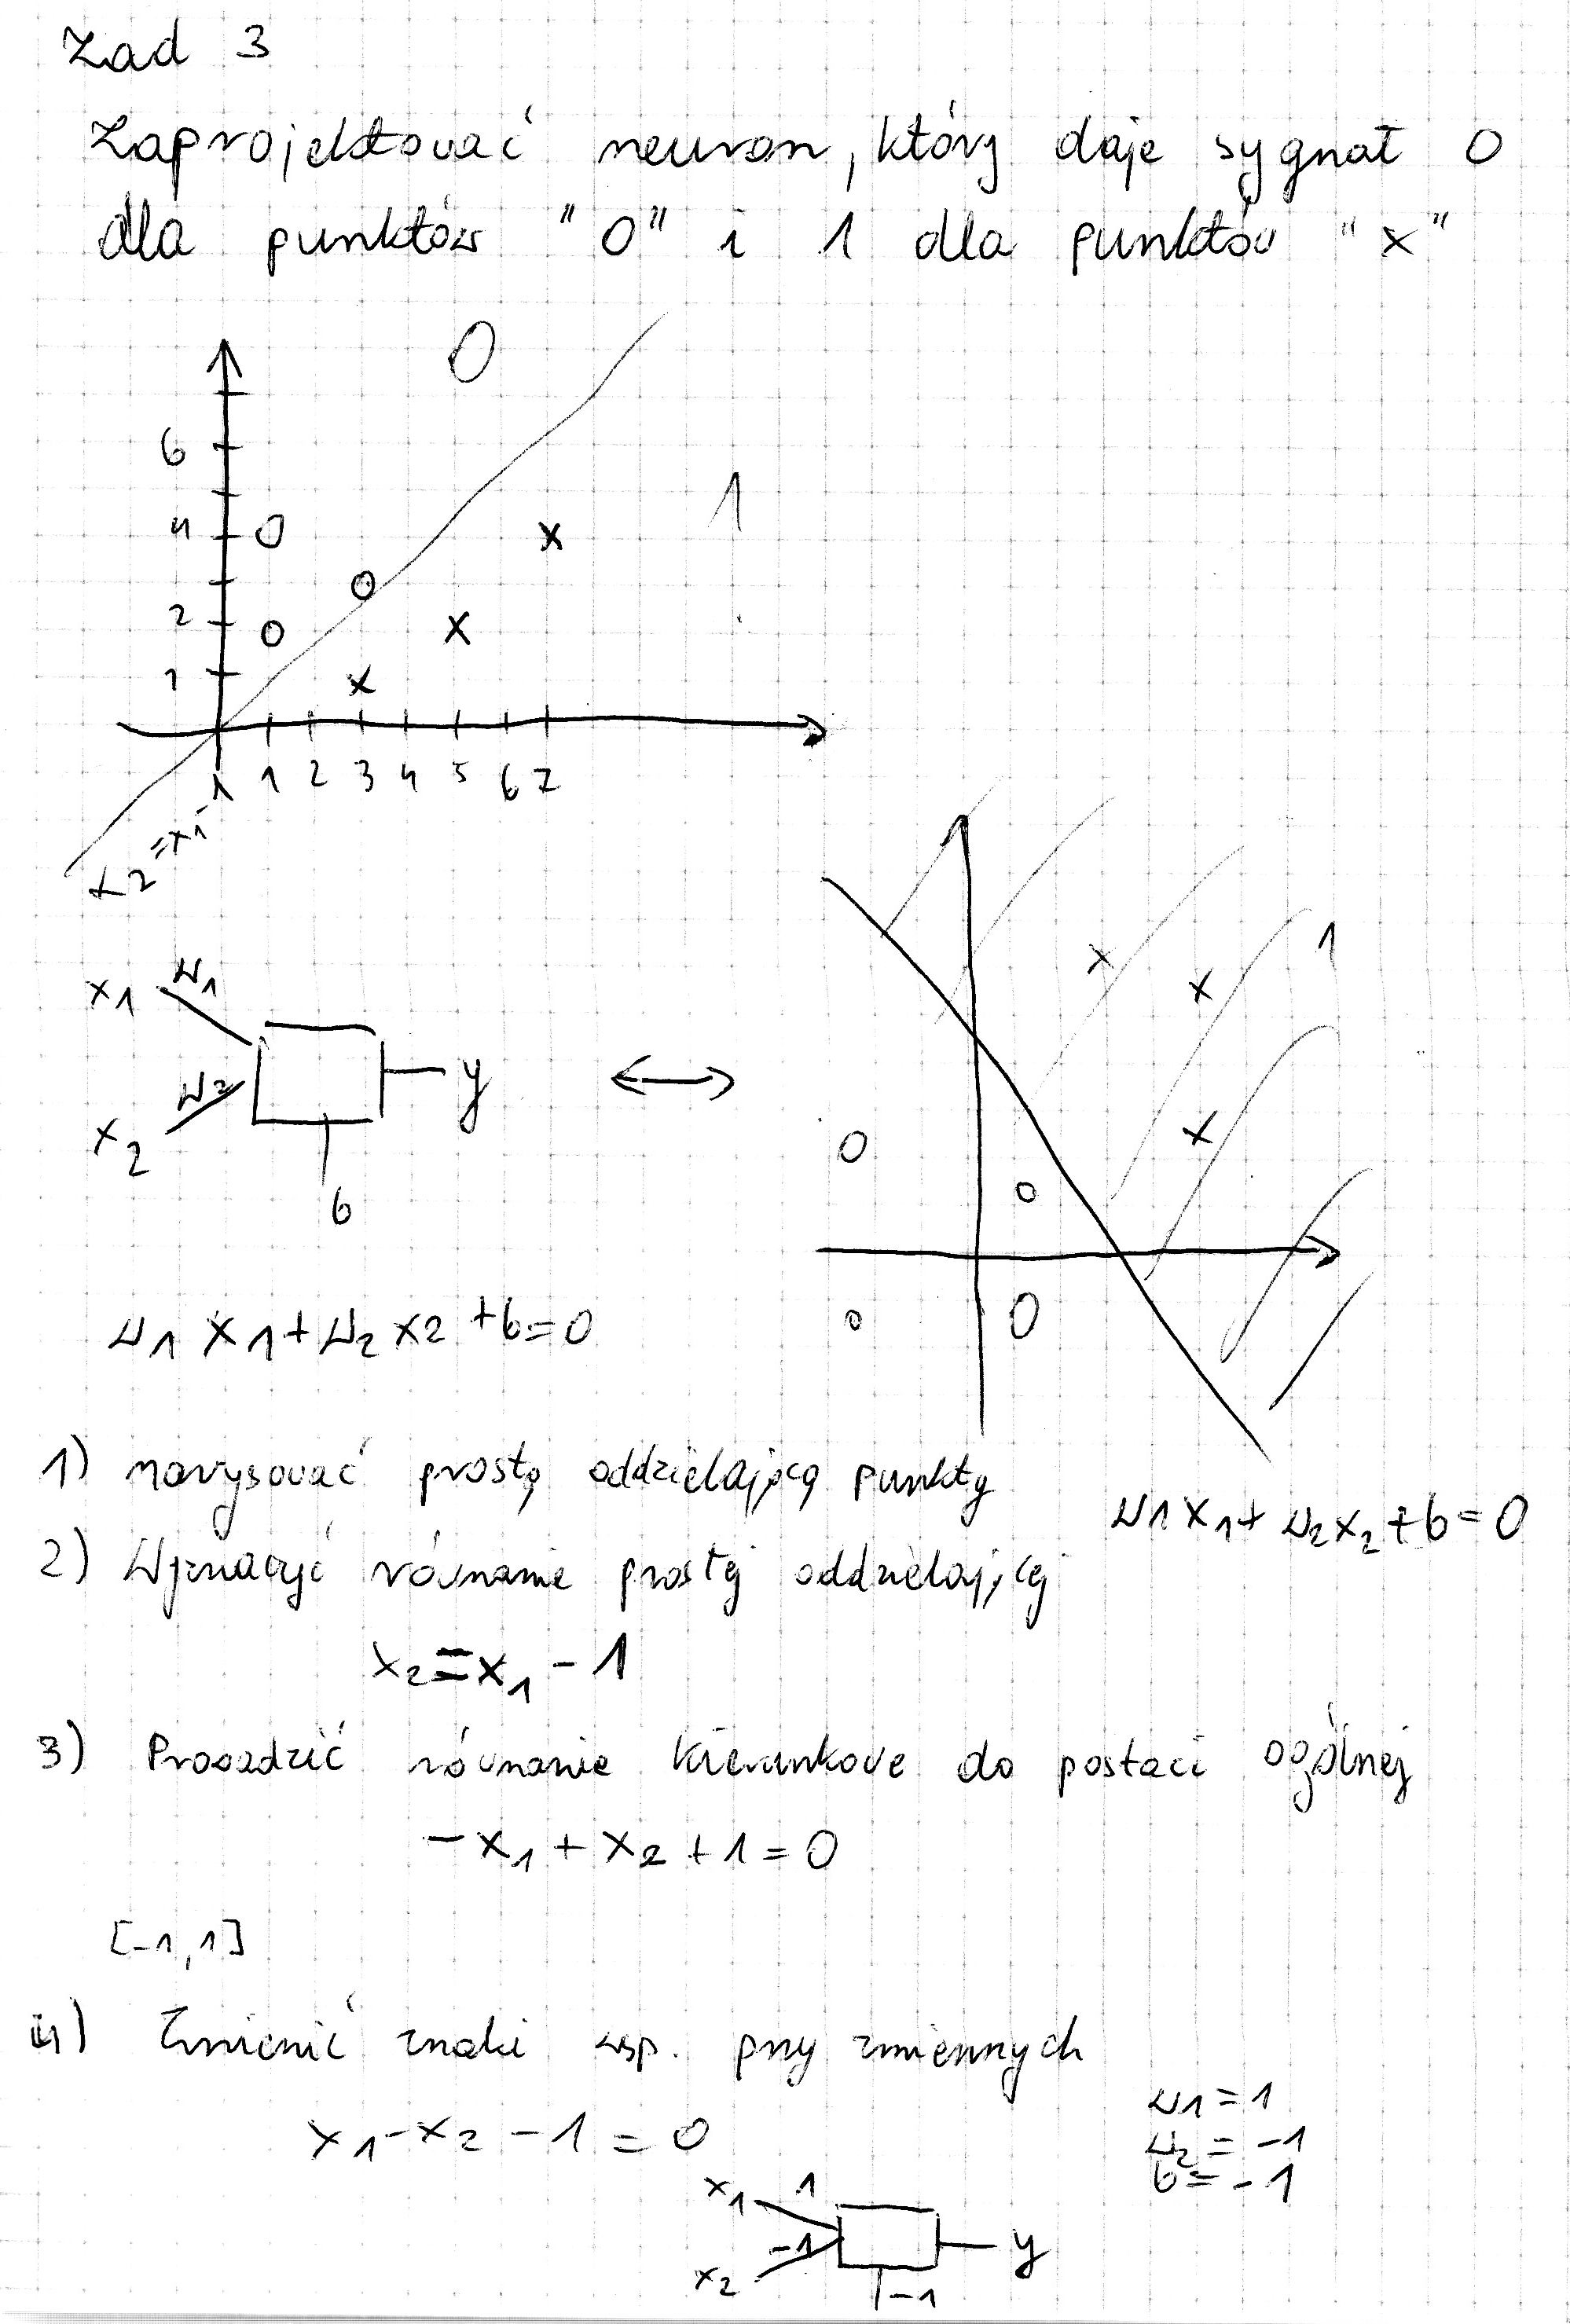 Zad 3
Zaprojektować neuron, który daje sygnał 0
dla punktów "0" i 1 dla punktów "x"
0
6
1
4 0 x
0
2 0 x
1 x
1 1 2 3 4 5 6 7
x2=x1-
x1 w1
1
x x
w2 y
x2
0 x
b 0
w1 x1+w2 x2 +b=0
0 0
1) narysować prostą oddzielającą punkty
w1x1+w2x2+b=0
2) Wyznaczyć równanie prostej oddzielającej
x2=x1-1
3) Prowadzić równanie kierunkowe do postaci ogólnej
-x1+x2+1=0
[-1,1]
4) Zmienić znaki wsp. przy zmiennych
w1=1
x1-x2-1=0
w2=-1
b=-1
x1 1
-1 y
x2 -1